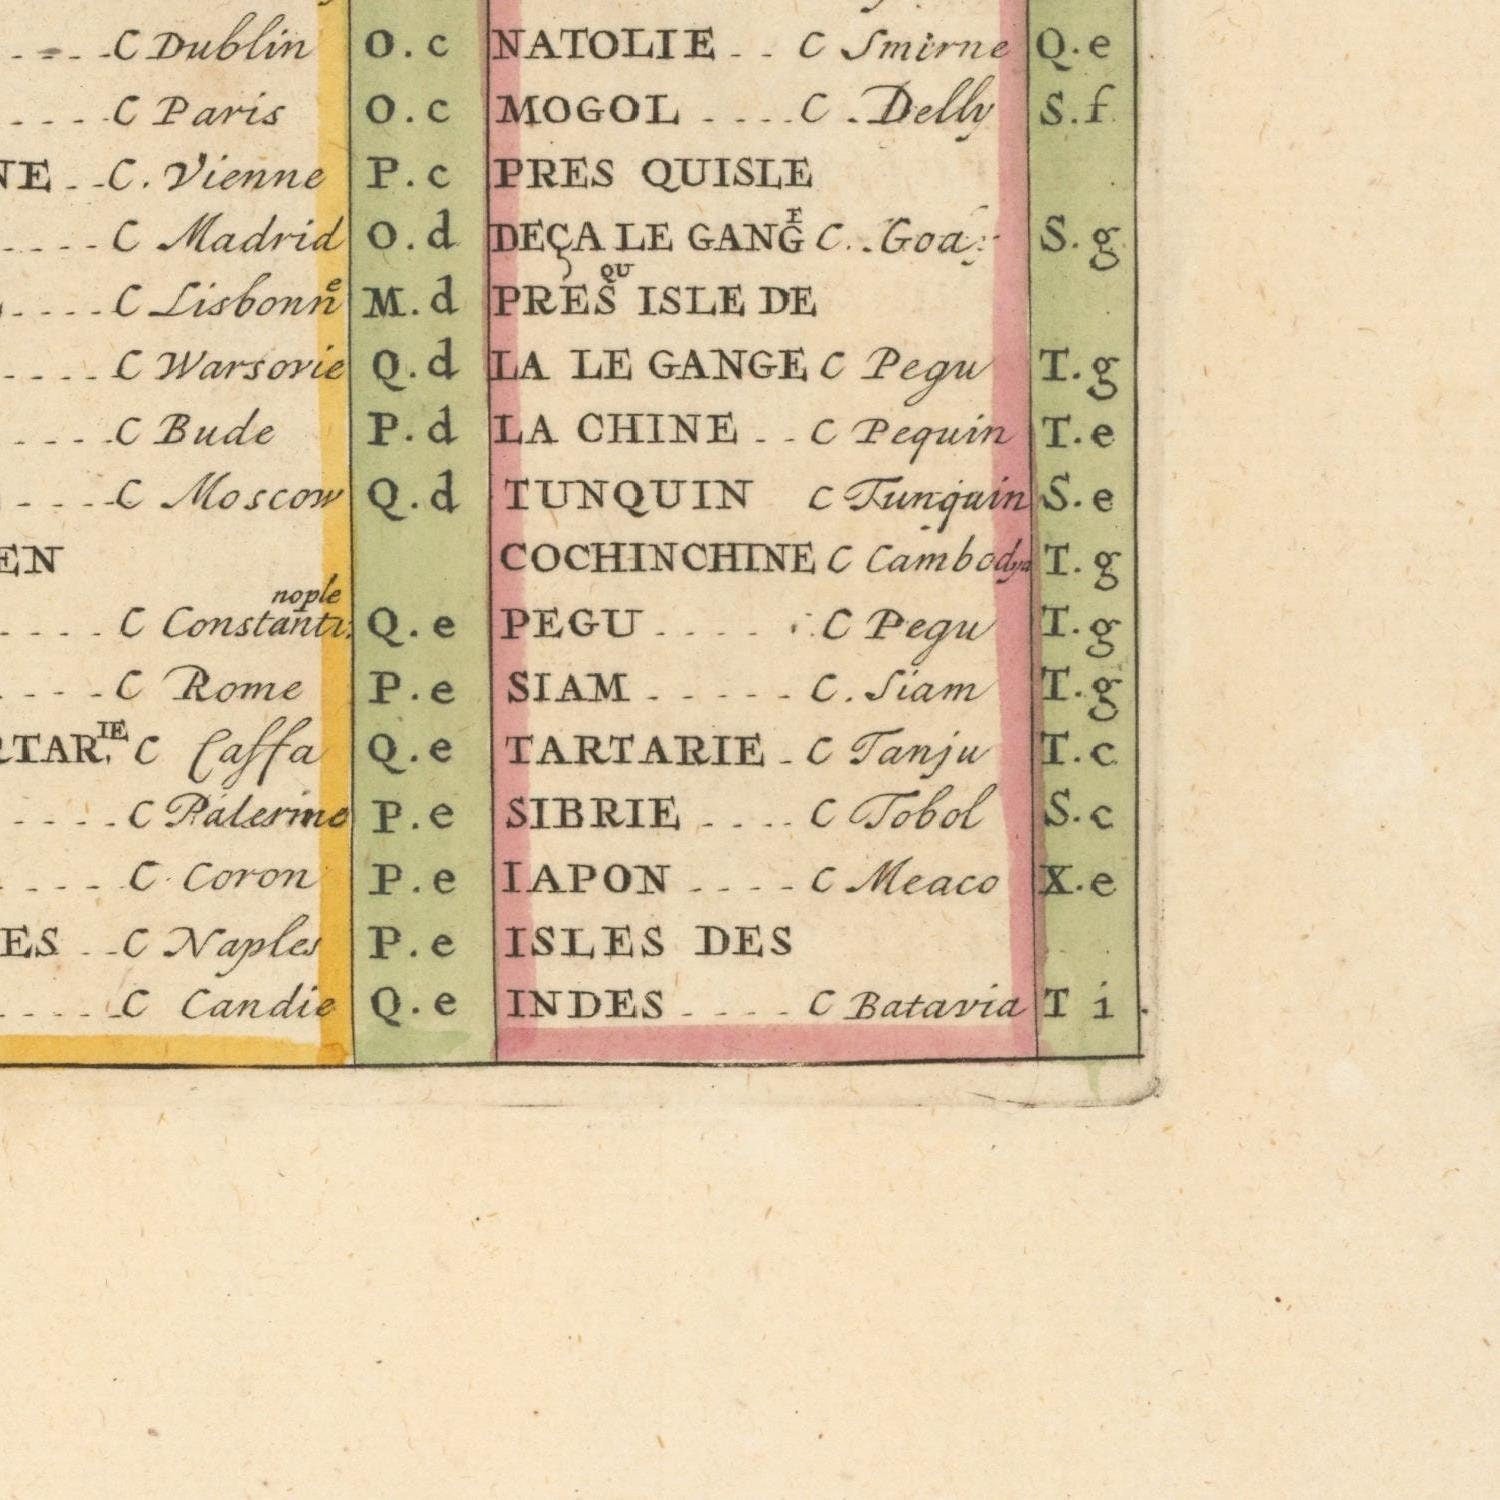 C Dublin O.c
C Paris O.c
NE C. Vienne P.c
C Madrid O.d
C Lisbonne M.d
C Warsovie Q.d
C Bude P.d
C Moscow Q.d
EN
C Constantinople Q.e
C Rome P.e
RTARIE C Caffa Q.e
C Palerme P.e
C Coron P.e
ES C Naples P.e
C Candie Q.e
NATOLIE C Smirne Q.e
MOGOL C. Delly S.f
PRES QUISLE
DEÇA LE GANGE C. Goa S.g
PRESQU ISLE DE
LA LE GANGE C Pegu T.g
LA CHINE C Pequin T.e
TUNQUIN C Tunquin S.e
COCHINCHINE C Cambodya T.g
PEGU C Pegu T.g
SIAM C. Siam T.g
TARTARIE C Tanju T.c
SIBRIE C Tobol S.c
IAPON C Meaco X.e
ISLES DES
INDES C Batavia T i.